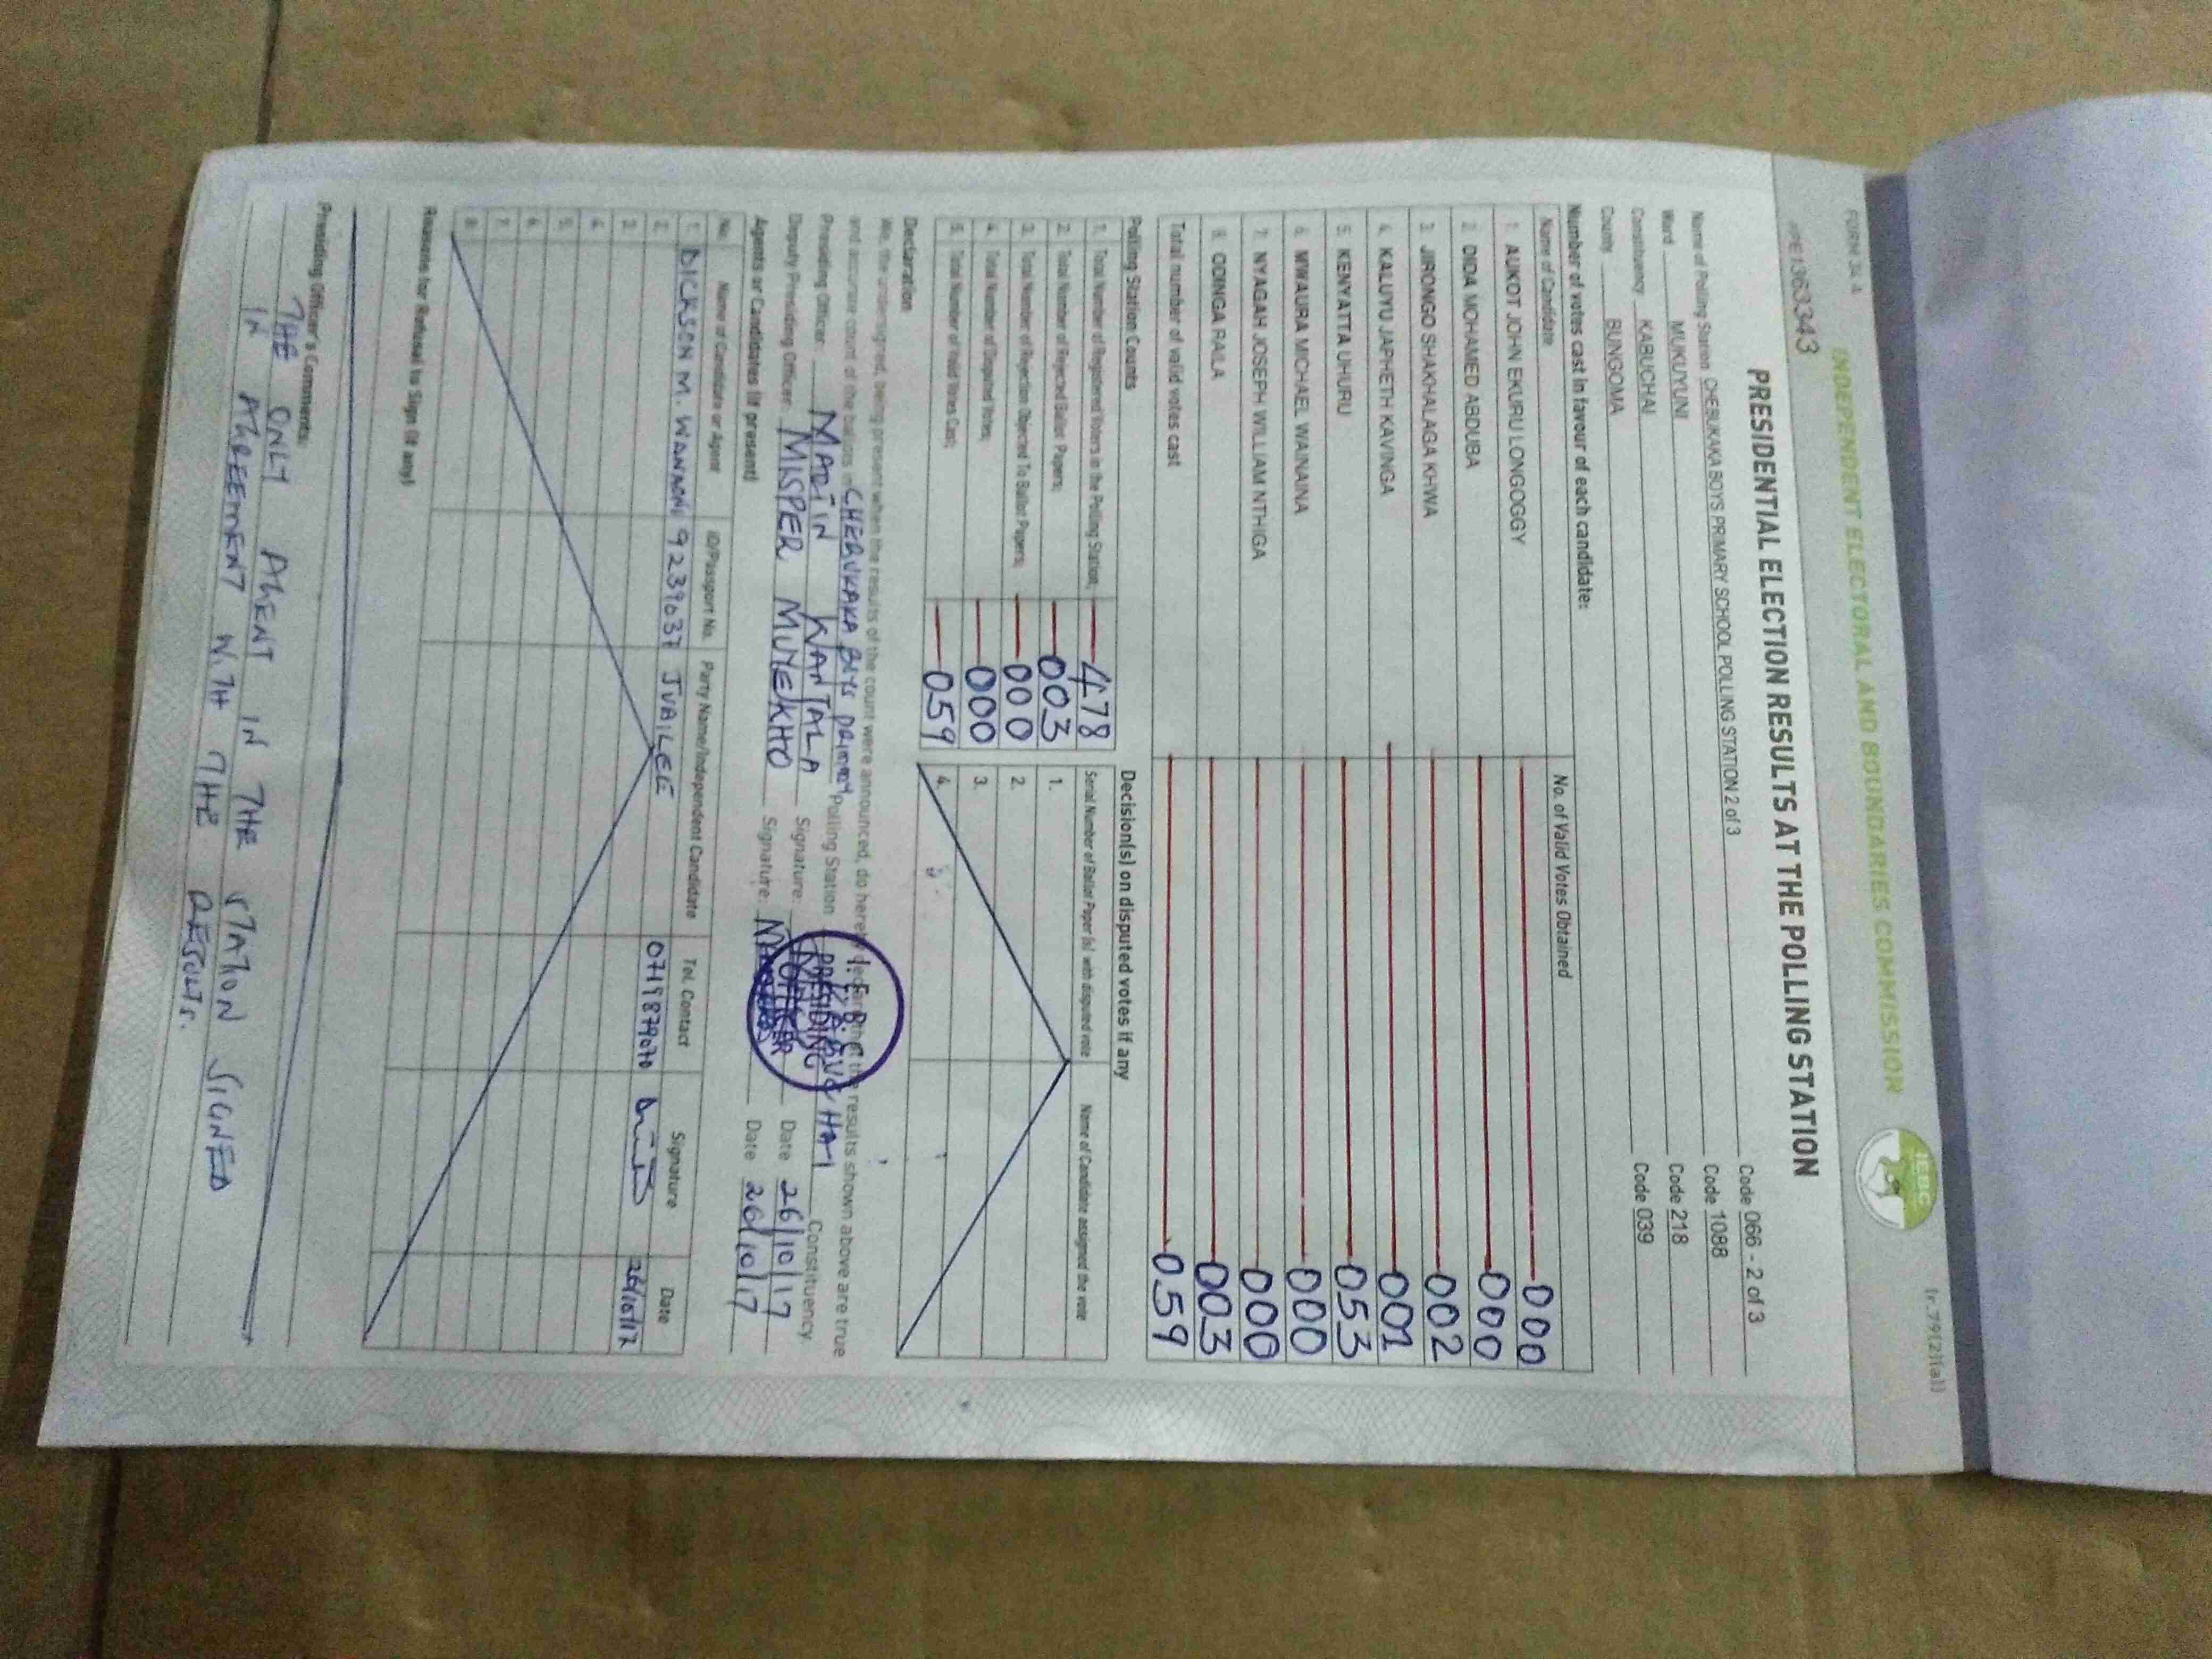 FORM 34 A
(r.79(2)(a))
INDEPENDENT ELECTORAL AND BOUNDARIES COMMISSION
IEBC
PRE1363343
PRESIDENTIAL ELECTION RESULTS AT THE POLLING STATION
Name of Polling Station CHEBUKAKA BOYS PRIMARY SCHOOL POLLING STATION 2 of 3 Code 066 - 2 of 3
Ward MUKUYUNI Code 1088
Constituency KABUCHAI Code 218
County BUNGOMA Code 039
Number of votes cast in favour of each candidate:
Name of Candidate No. of Valid Votes Obtained
1. AUKOT JOHN EKURU LONGOGGY 000
2. DIDA MOHAMED ABDUBA 000
3. JIRONGO SHAKHALAGA KHWA 002
4. KALUYU JAPHETH KAVINGA 001
5. KENYATTA UHURU 053
6. MWAURA MICHAEL WAINAINA 000
7. NYAGAH JOSEPH WILLIAM NTHIGA 000
8. ODINGA RAILA 003
Total number of valid votes cast 059
Polling Station Counts Decision(s) on disputed votes if any
Serial Number of Ballot Paper (s) with disputed vote Name of Candidate assigned the vote
1. Total Number of Registered Voters in the Polling Station; 478
2. Total Number of Rejected Ballot Papers; 003 1.
3. Total Number of Rejection Objected To Ballot Papers; 000 2.
4. Total Number of Disputed Votes; 000 3.
5. Total Number of Valid Votes Cast; 059 4.
Declaration
We, the undersigned, being present when the results of the count were announced, do hereby declare that the results shown above are true
and accurate count of the ballots in CHEBUKAKA BOYS PRIMARY Polling Station Constituency.
Presiding Officer: MARTIN WANJALA Signature: Date 26/10/17
Deputy Presiding Officer: MISPER MUYEKHO Signature: Date 26/10/17
I.E.B.C
PRESIDING
OFFICER
Agents or Candidates (if present)
No. Name of Candidate or Agent ID/Passport No. Party Name/Independent Candidate Tel. Contact Signature Date
1. DICKSON M. WANAMI 9239037 JUBILEE 0719879070 26/10/17
2.
3.
4.
5.
6.
7.
8.
Reasons for Refusal to Sign (if any)
Presiding Officer's Comments:
THE ONLY AGENT IN THE STATION SIGNED
IN AGREEMENT WITH THE RESULTS.